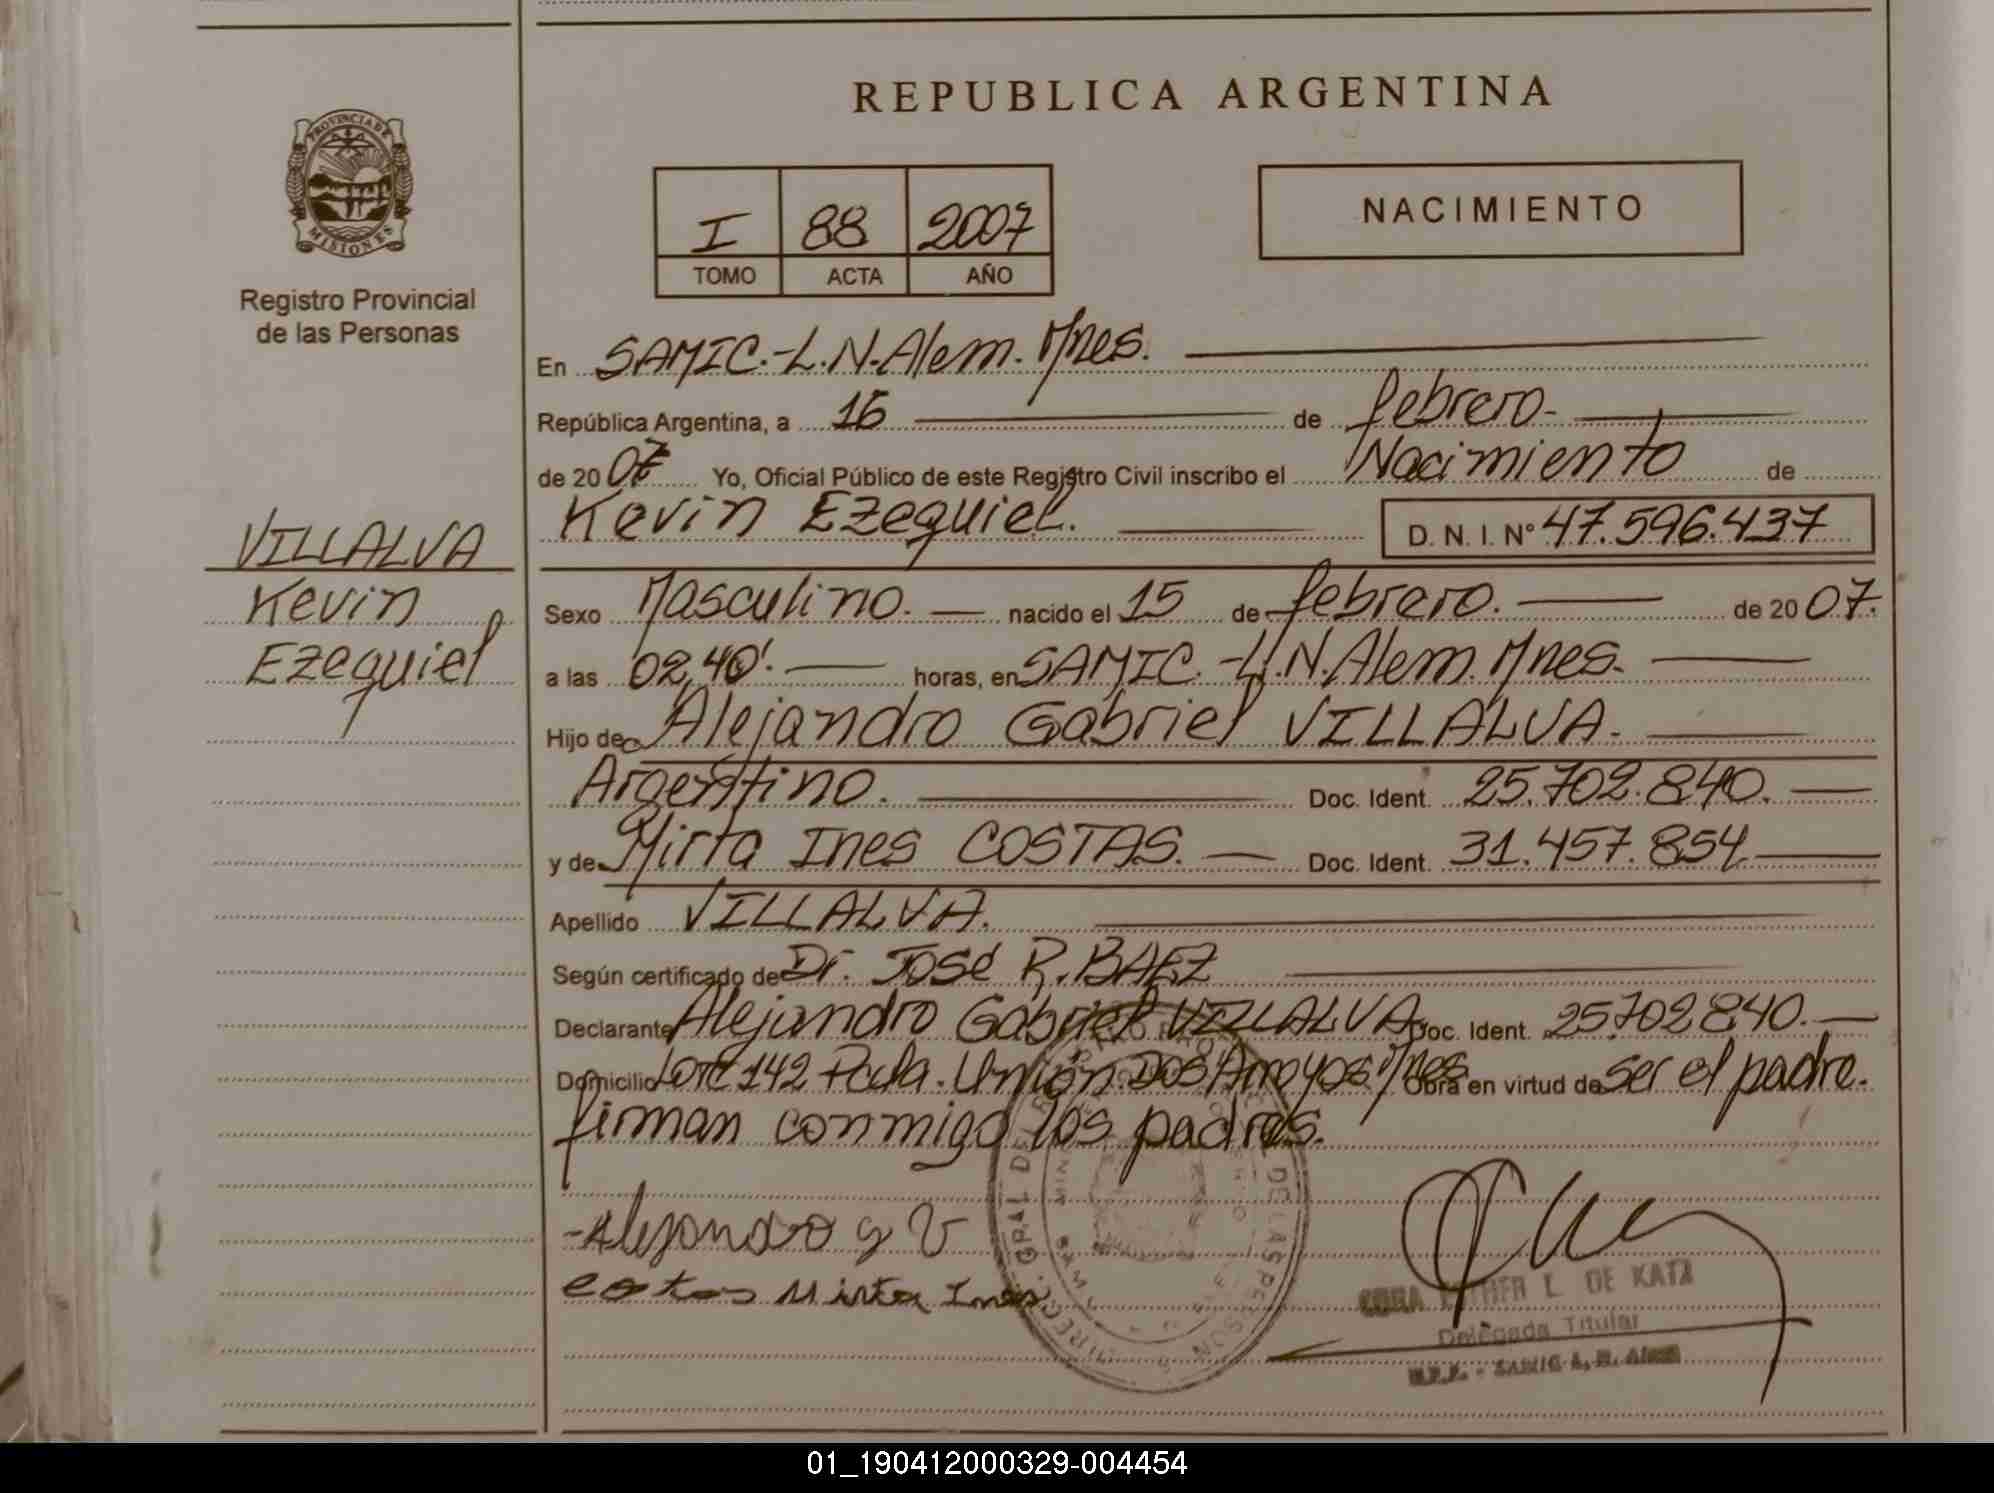 REPUBLICA ARGENTINA
PROVINCIA DE
MISIONES
Registro Provincial
de las Personas
I 88 2007
TOMO ACTA AÑO
NACIMIENTO
En SAMIC.-L.N.Alem. Mnes.
República Argentina, a 16 de febrero.-
de 2007 Yo, Oficial Público de este Registro Civil inscribo el Nacimiento de
Kevin Ezequiel. D. N. I. Nº 47.596.437
VILLALVA
Kevin
Ezequiel
Sexo Masculino. nacido el 15 de febrero. de 2007.
a las 02,40'. horas, en SAMIC.-L.N.Alem. Mnes.
Hijo de Alejandro Gabriel VILLALVA.
Argentino. Doc. Ident. 25.702.840.
y de Mirta Ines COSTAS. Doc. Ident. 31.457.854
Apellido VILLALVA.
Según certificado de Dr. José R. BAEZ
Declarante Alejandro Gabriel VILLALVA Doc. Ident. 25.702.840.
Domicilio Lote 142 Pcda. Unión. Dos Arroyos Mnes Obra en virtud de ser el padre.
firman conmigo los padres.
-Alejandro g V
costas Mirta Ines
ESTHER L. DE KATZ
Delegada Titular
R.P.P. - SAMIC L. N. Alem
01_190412000329-004454